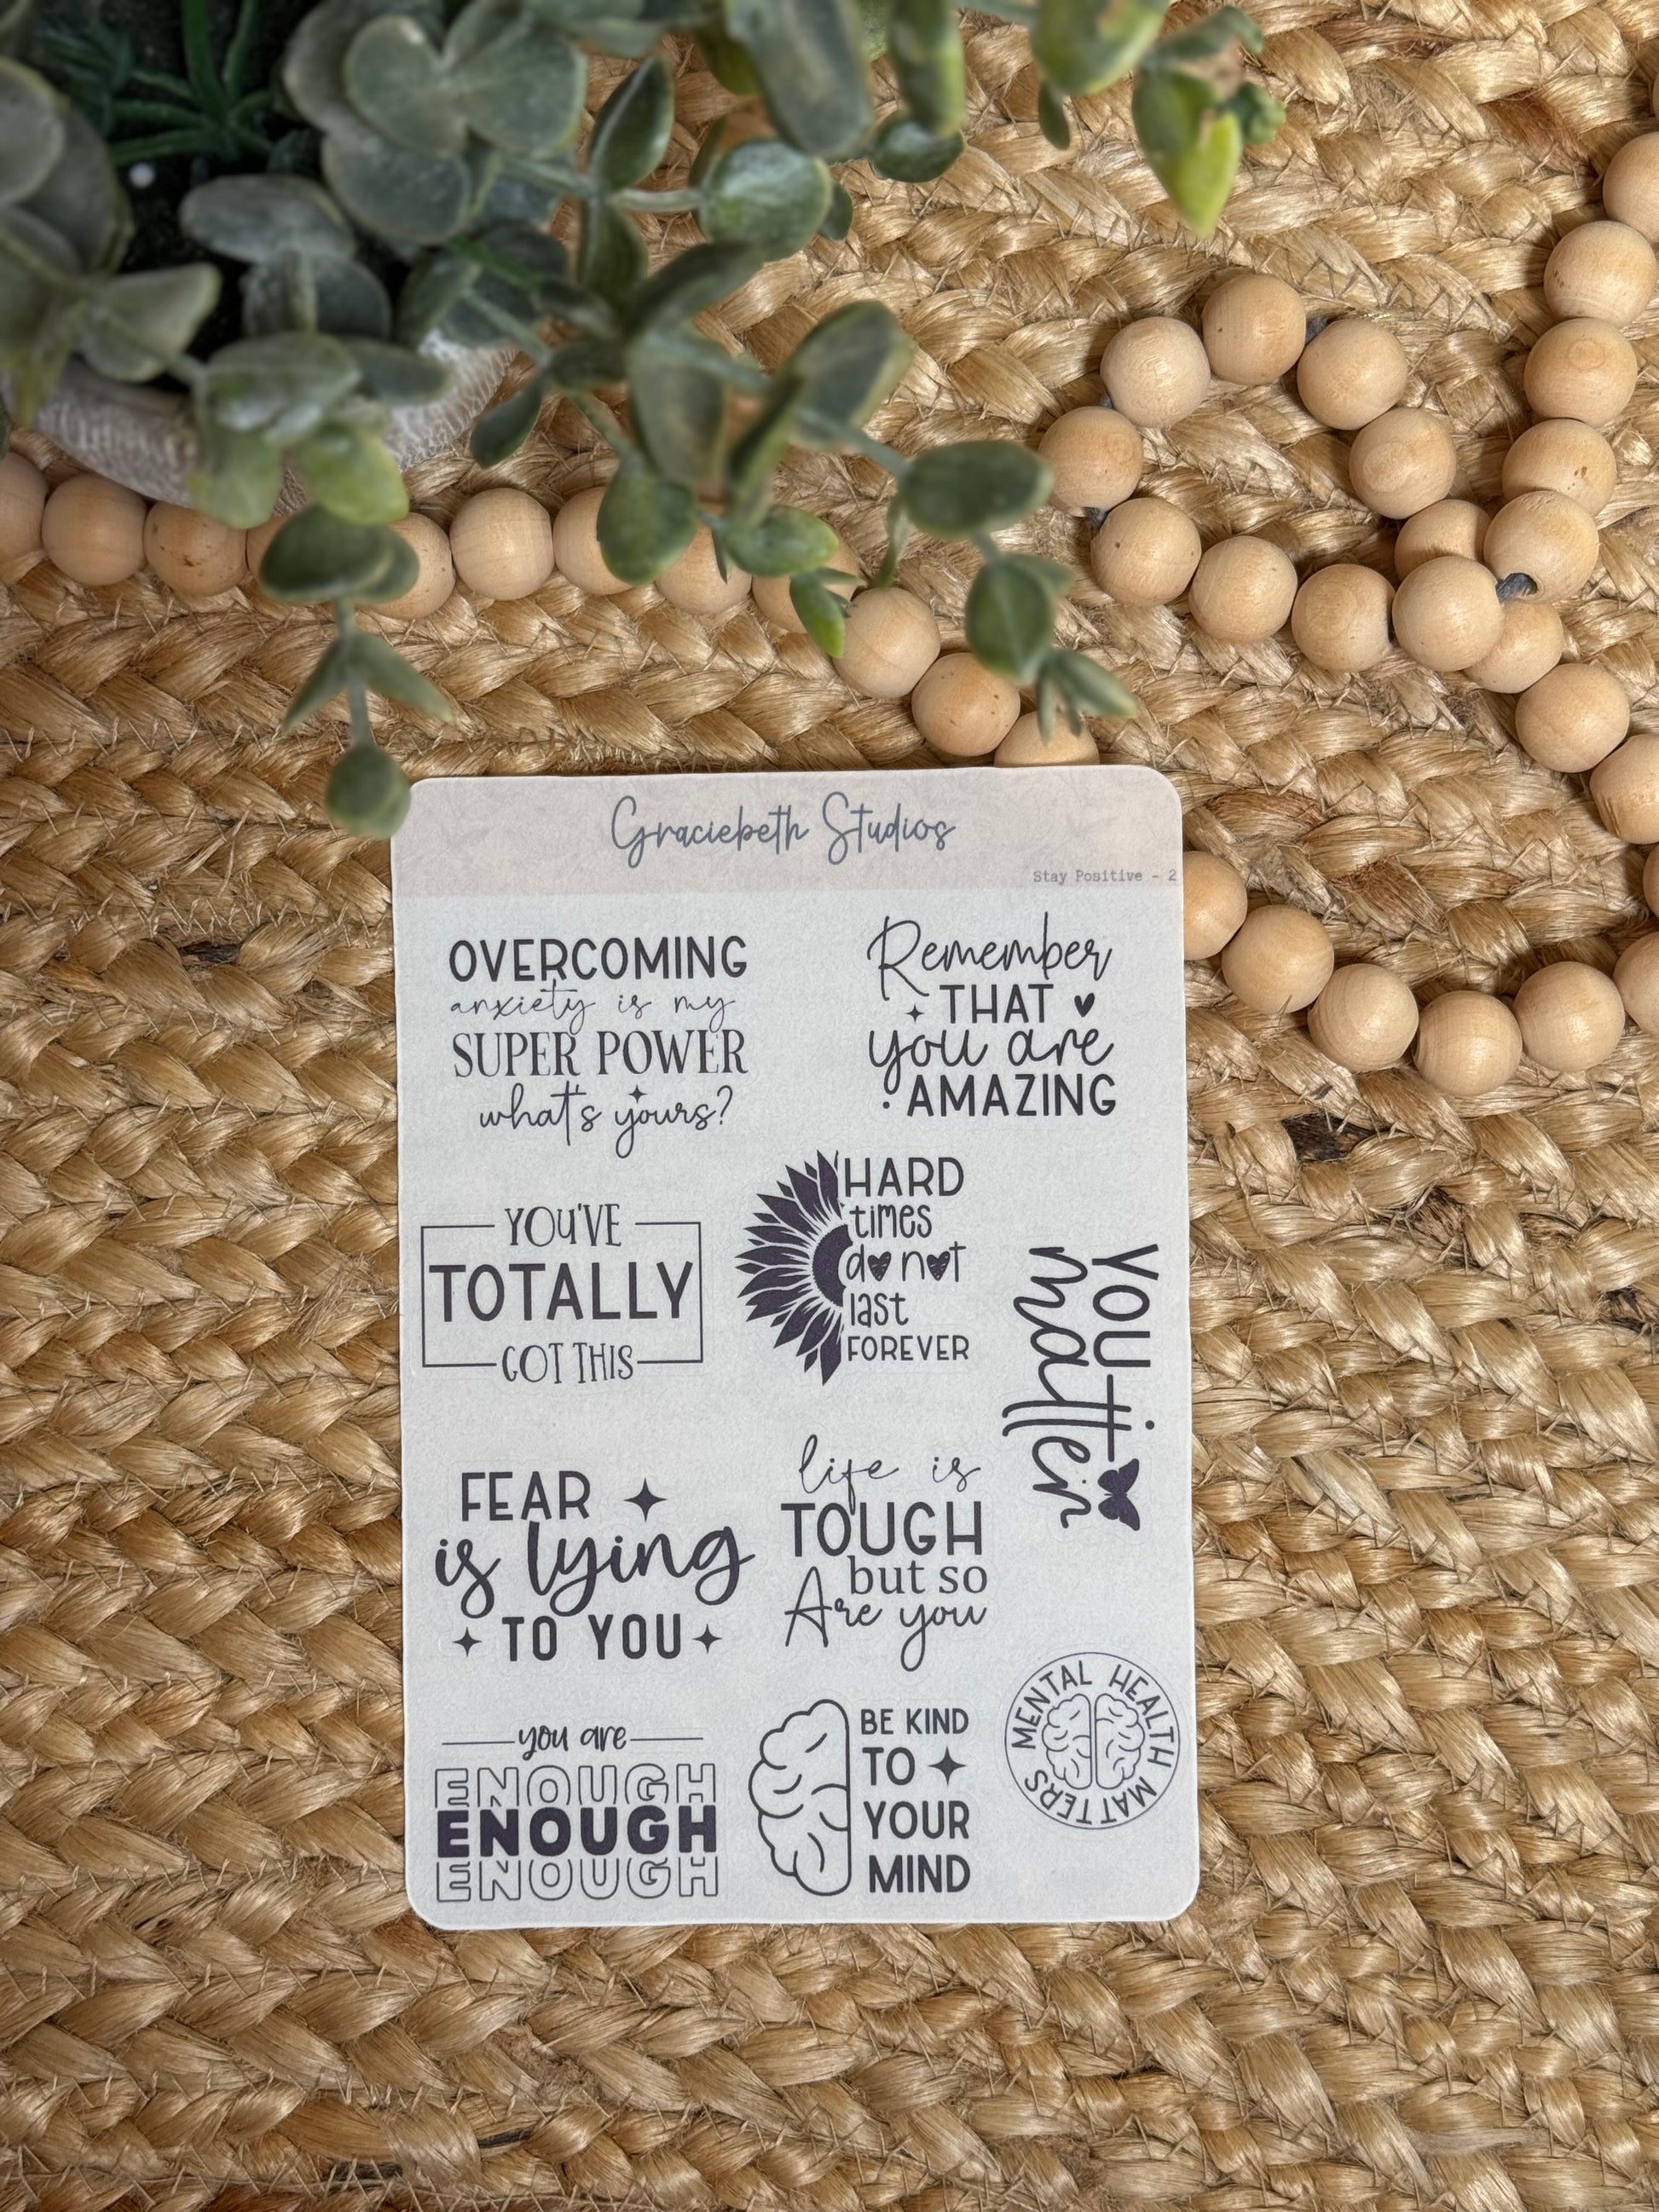 Graciebeth Studios
Stay Positive - 2
OVERCOMING
anxiety is my
SUPER POWER
what's yours?
Remember
THAT
you are
AMAZING
YOU'VE
TOTALLY
GOT THIS
HARD
times
do not
last
FOREVER
YOU
matter
FEAR
is lying
TO YOU
life is
TOUGH
but so
Are you
you are
ENOUGH
ENOUGH
ENOUGH
BE KIND
TO
YOUR
MIND
MENTAL HEALTH MATTERS